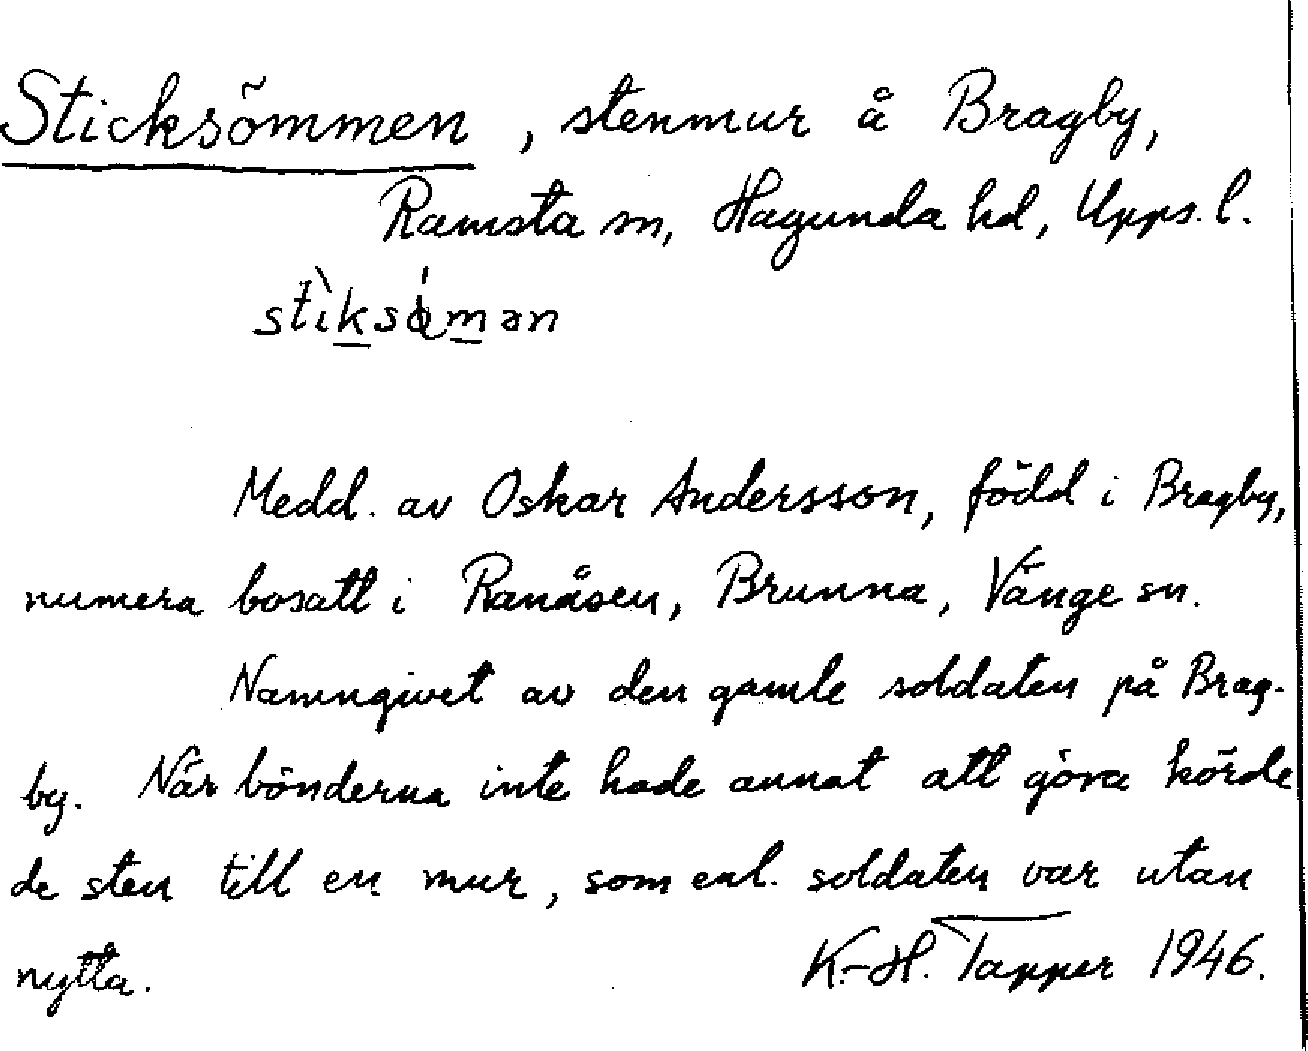 Sticksömmen, stenmur å Bragby,
Ramsta sn, Hagunda hd, Upps. l.
Medd. av Oskar Andersson, född i Bragby,
numera bosatt i Ranåsen, Brunna, Vänge sn.
Namngivet av den gamle soldaten på Brag-
by. När bönderna inte hade annat att göra körde
de sten till en mur, som enl. soldaten var utan
nytta. K.-H. Tapper 1946.